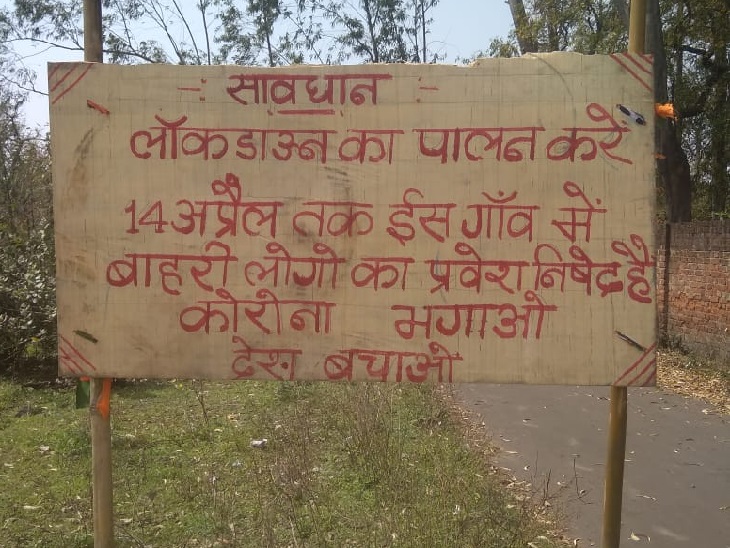 -: सावधान :-
लॉकडाऊन का पालन करे
14 अप्रैल तक ईस गाँव में
बाहरी लोगो का प्रवेश निषेद है
कोरोना भगाओ
देश बचाओ